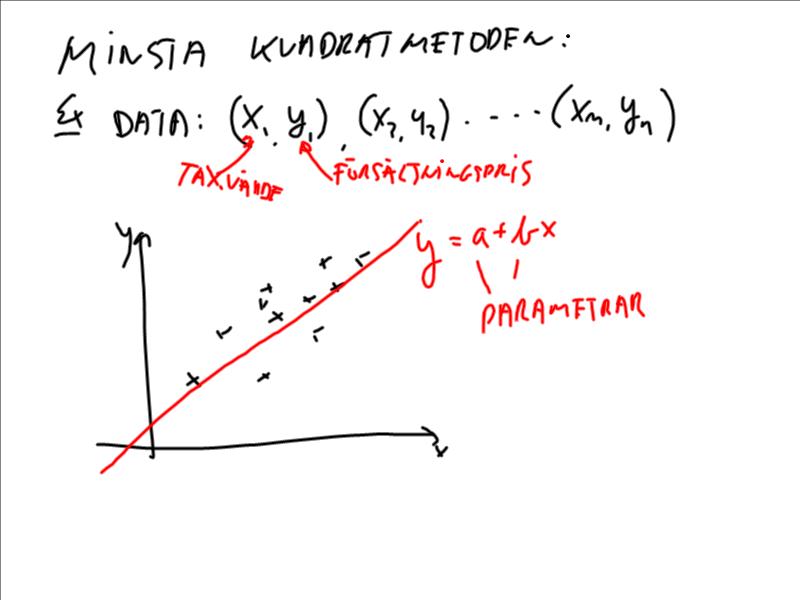 MINSTA KVADRATMETODEN:
Ex DATA: (x₁, y₁), (x₂, y₂) ..... (xₙ, yₙ)
TAX.VÄRDE FÖRSÄLJNINGSPRIS
y y = a + bx
PARAMETRAR
x